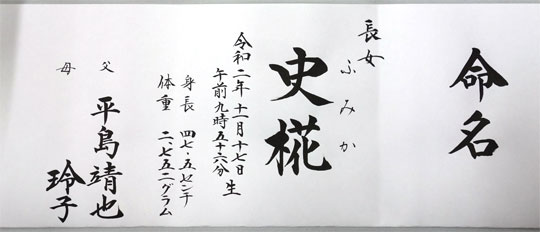 命名
長女
ふみか
史椛
令和二年十一月十七日
午前九時五十六分 生
身長 四七・五センチ
体重 二、七五二グラム
父 平島靖也
母 玲子